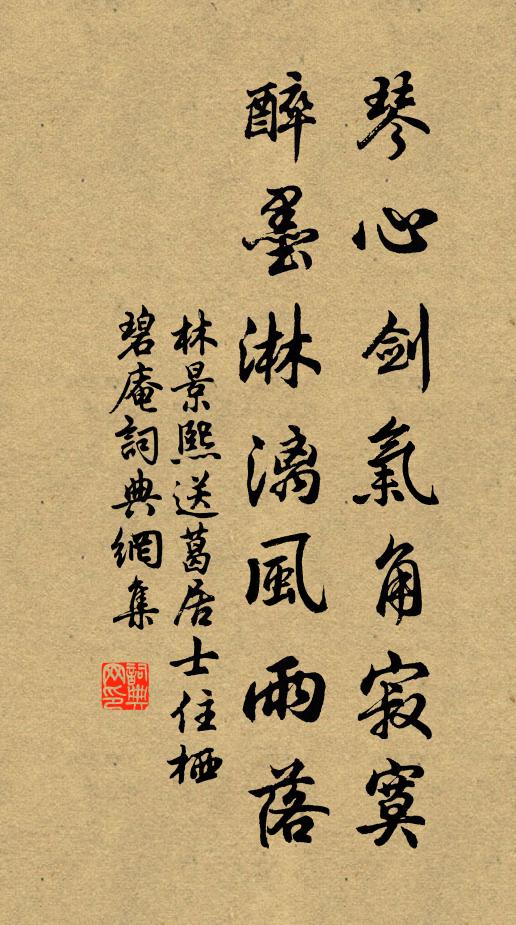 琴心劍氣角寂寞
醉墨淋漓風雨落
林景熙送葛居士住栖
碧庵詞典網集
詞典網印